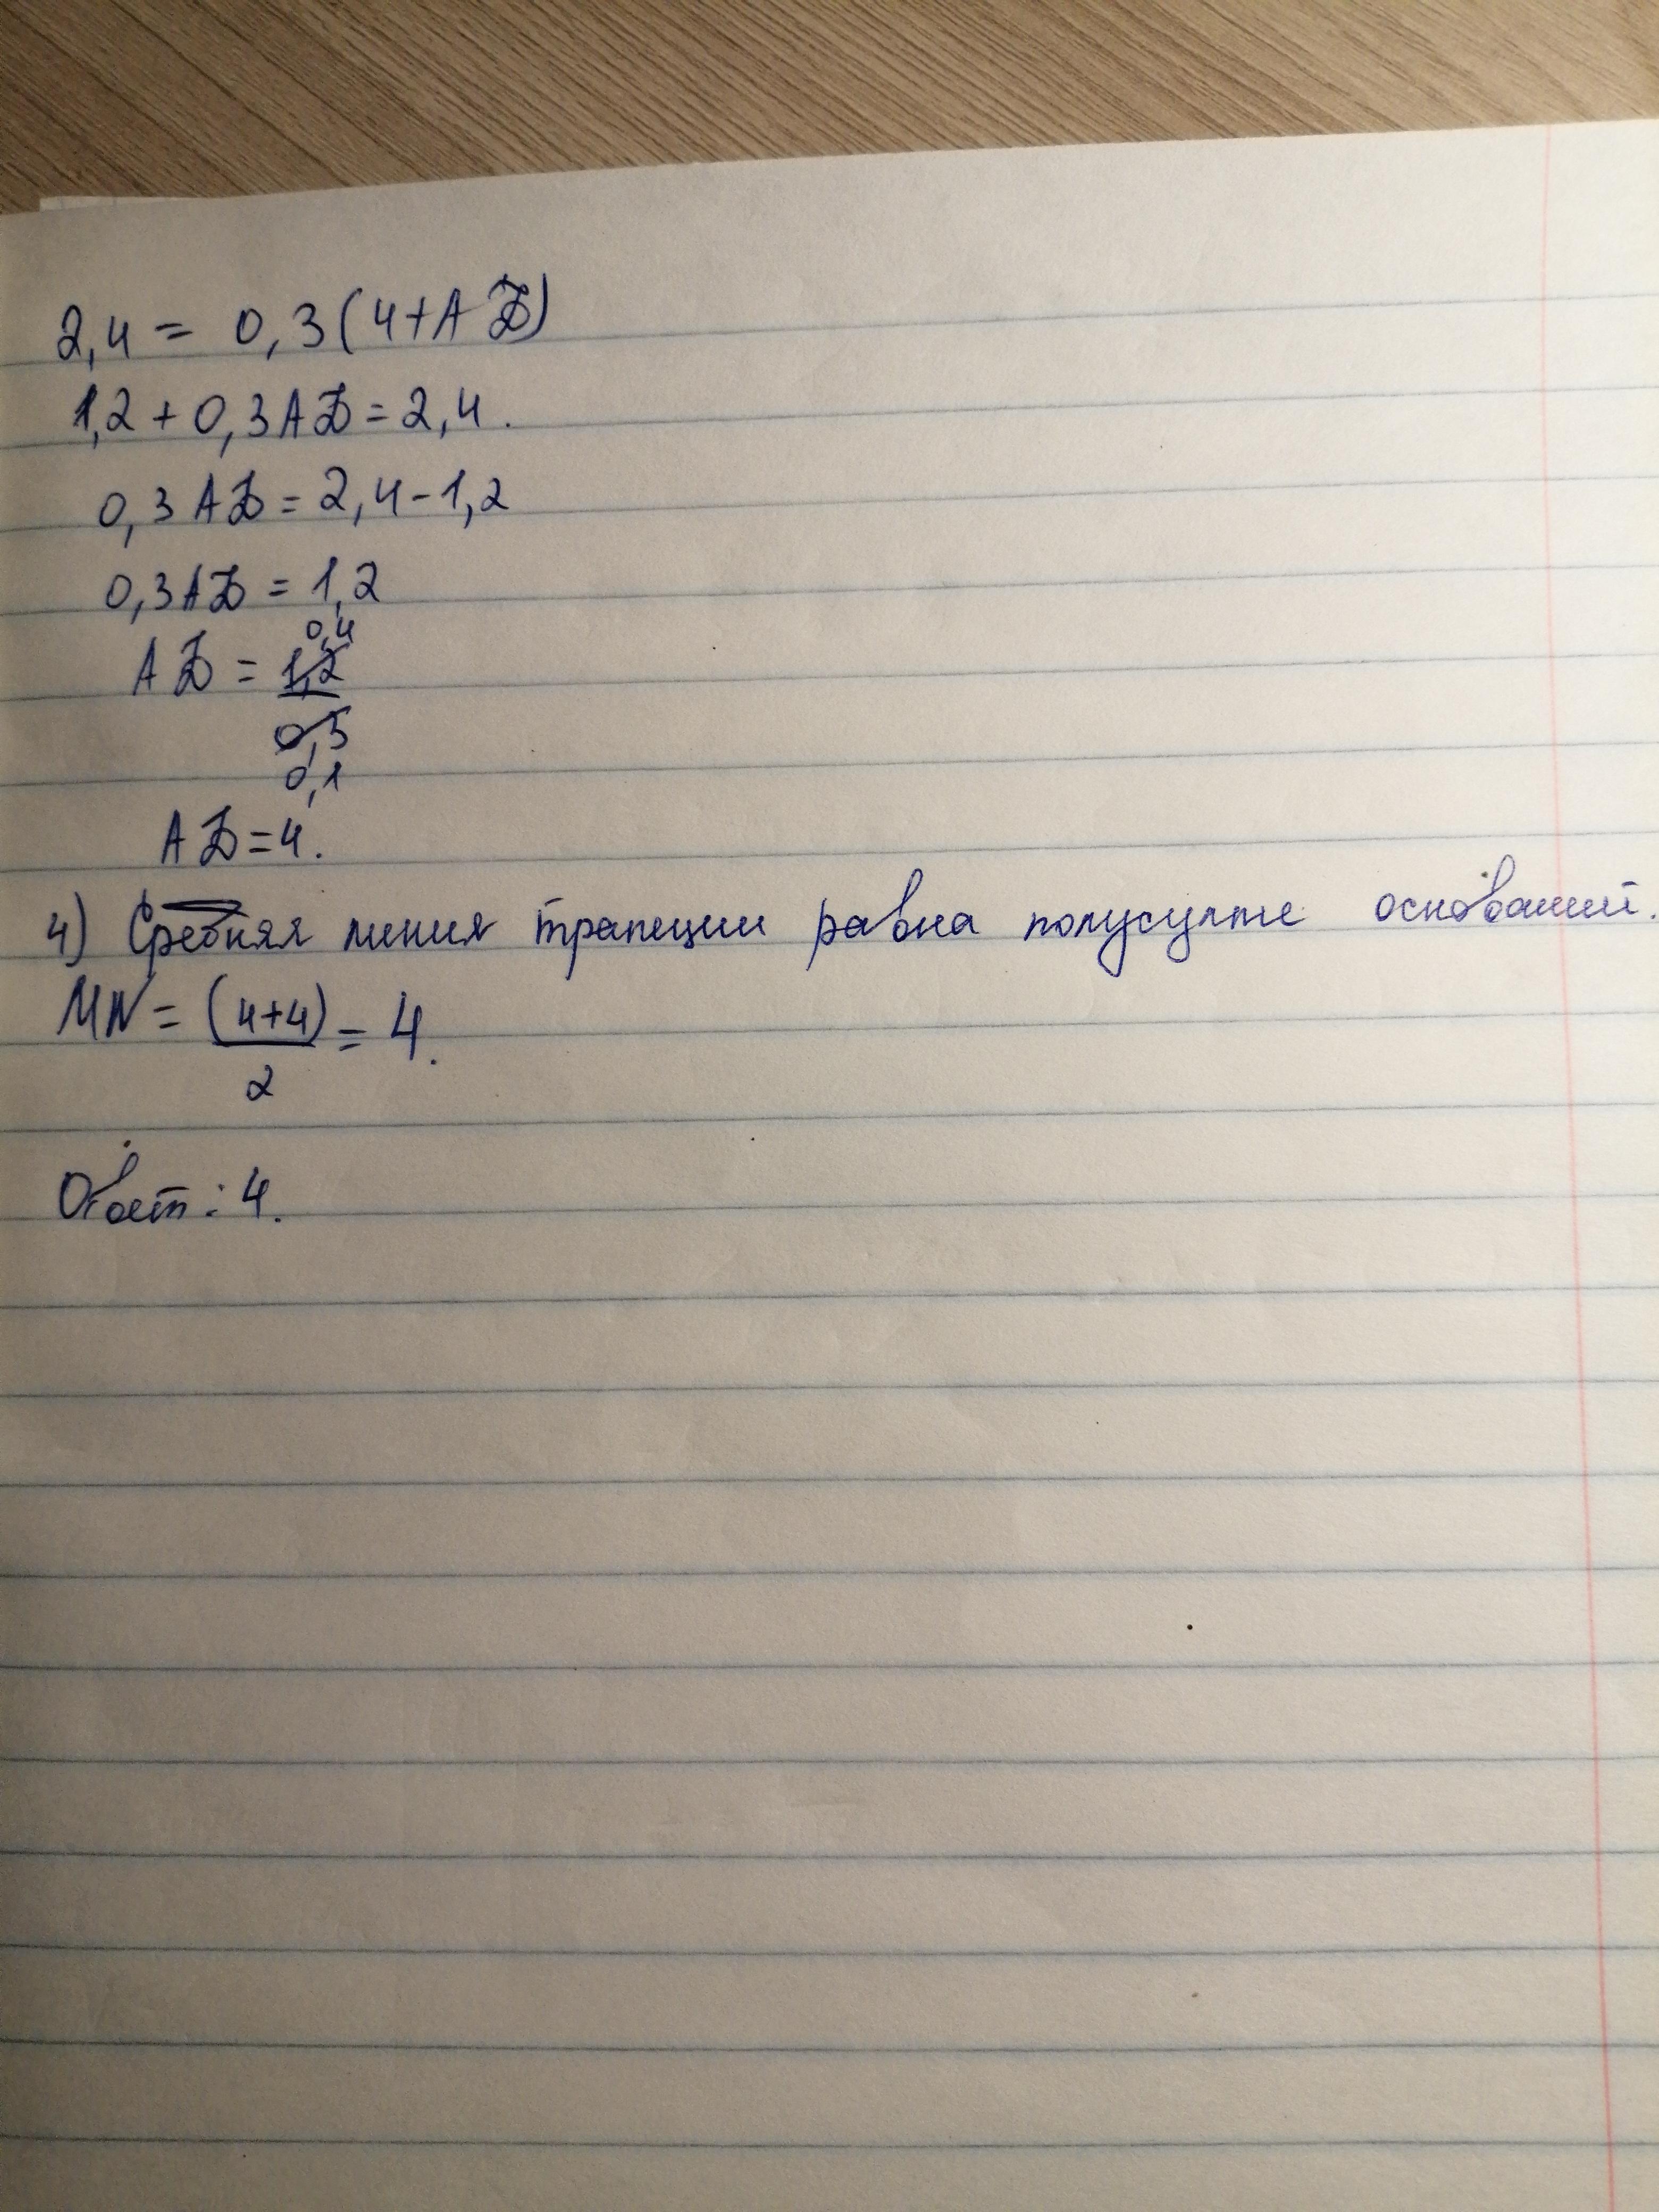 2,4 = 0,3(4+AD)
1,2 + 0,3AD = 2,4.
0,3AD = 2,4-1,2
0,3AD = 1,2
0,4
AD = 1,2
0,3
0,1
AD = 4.
4) Средняя линия трапеции равна полусумме оснований.
MN = (4+4) = 4.
2
Ответ: 4.